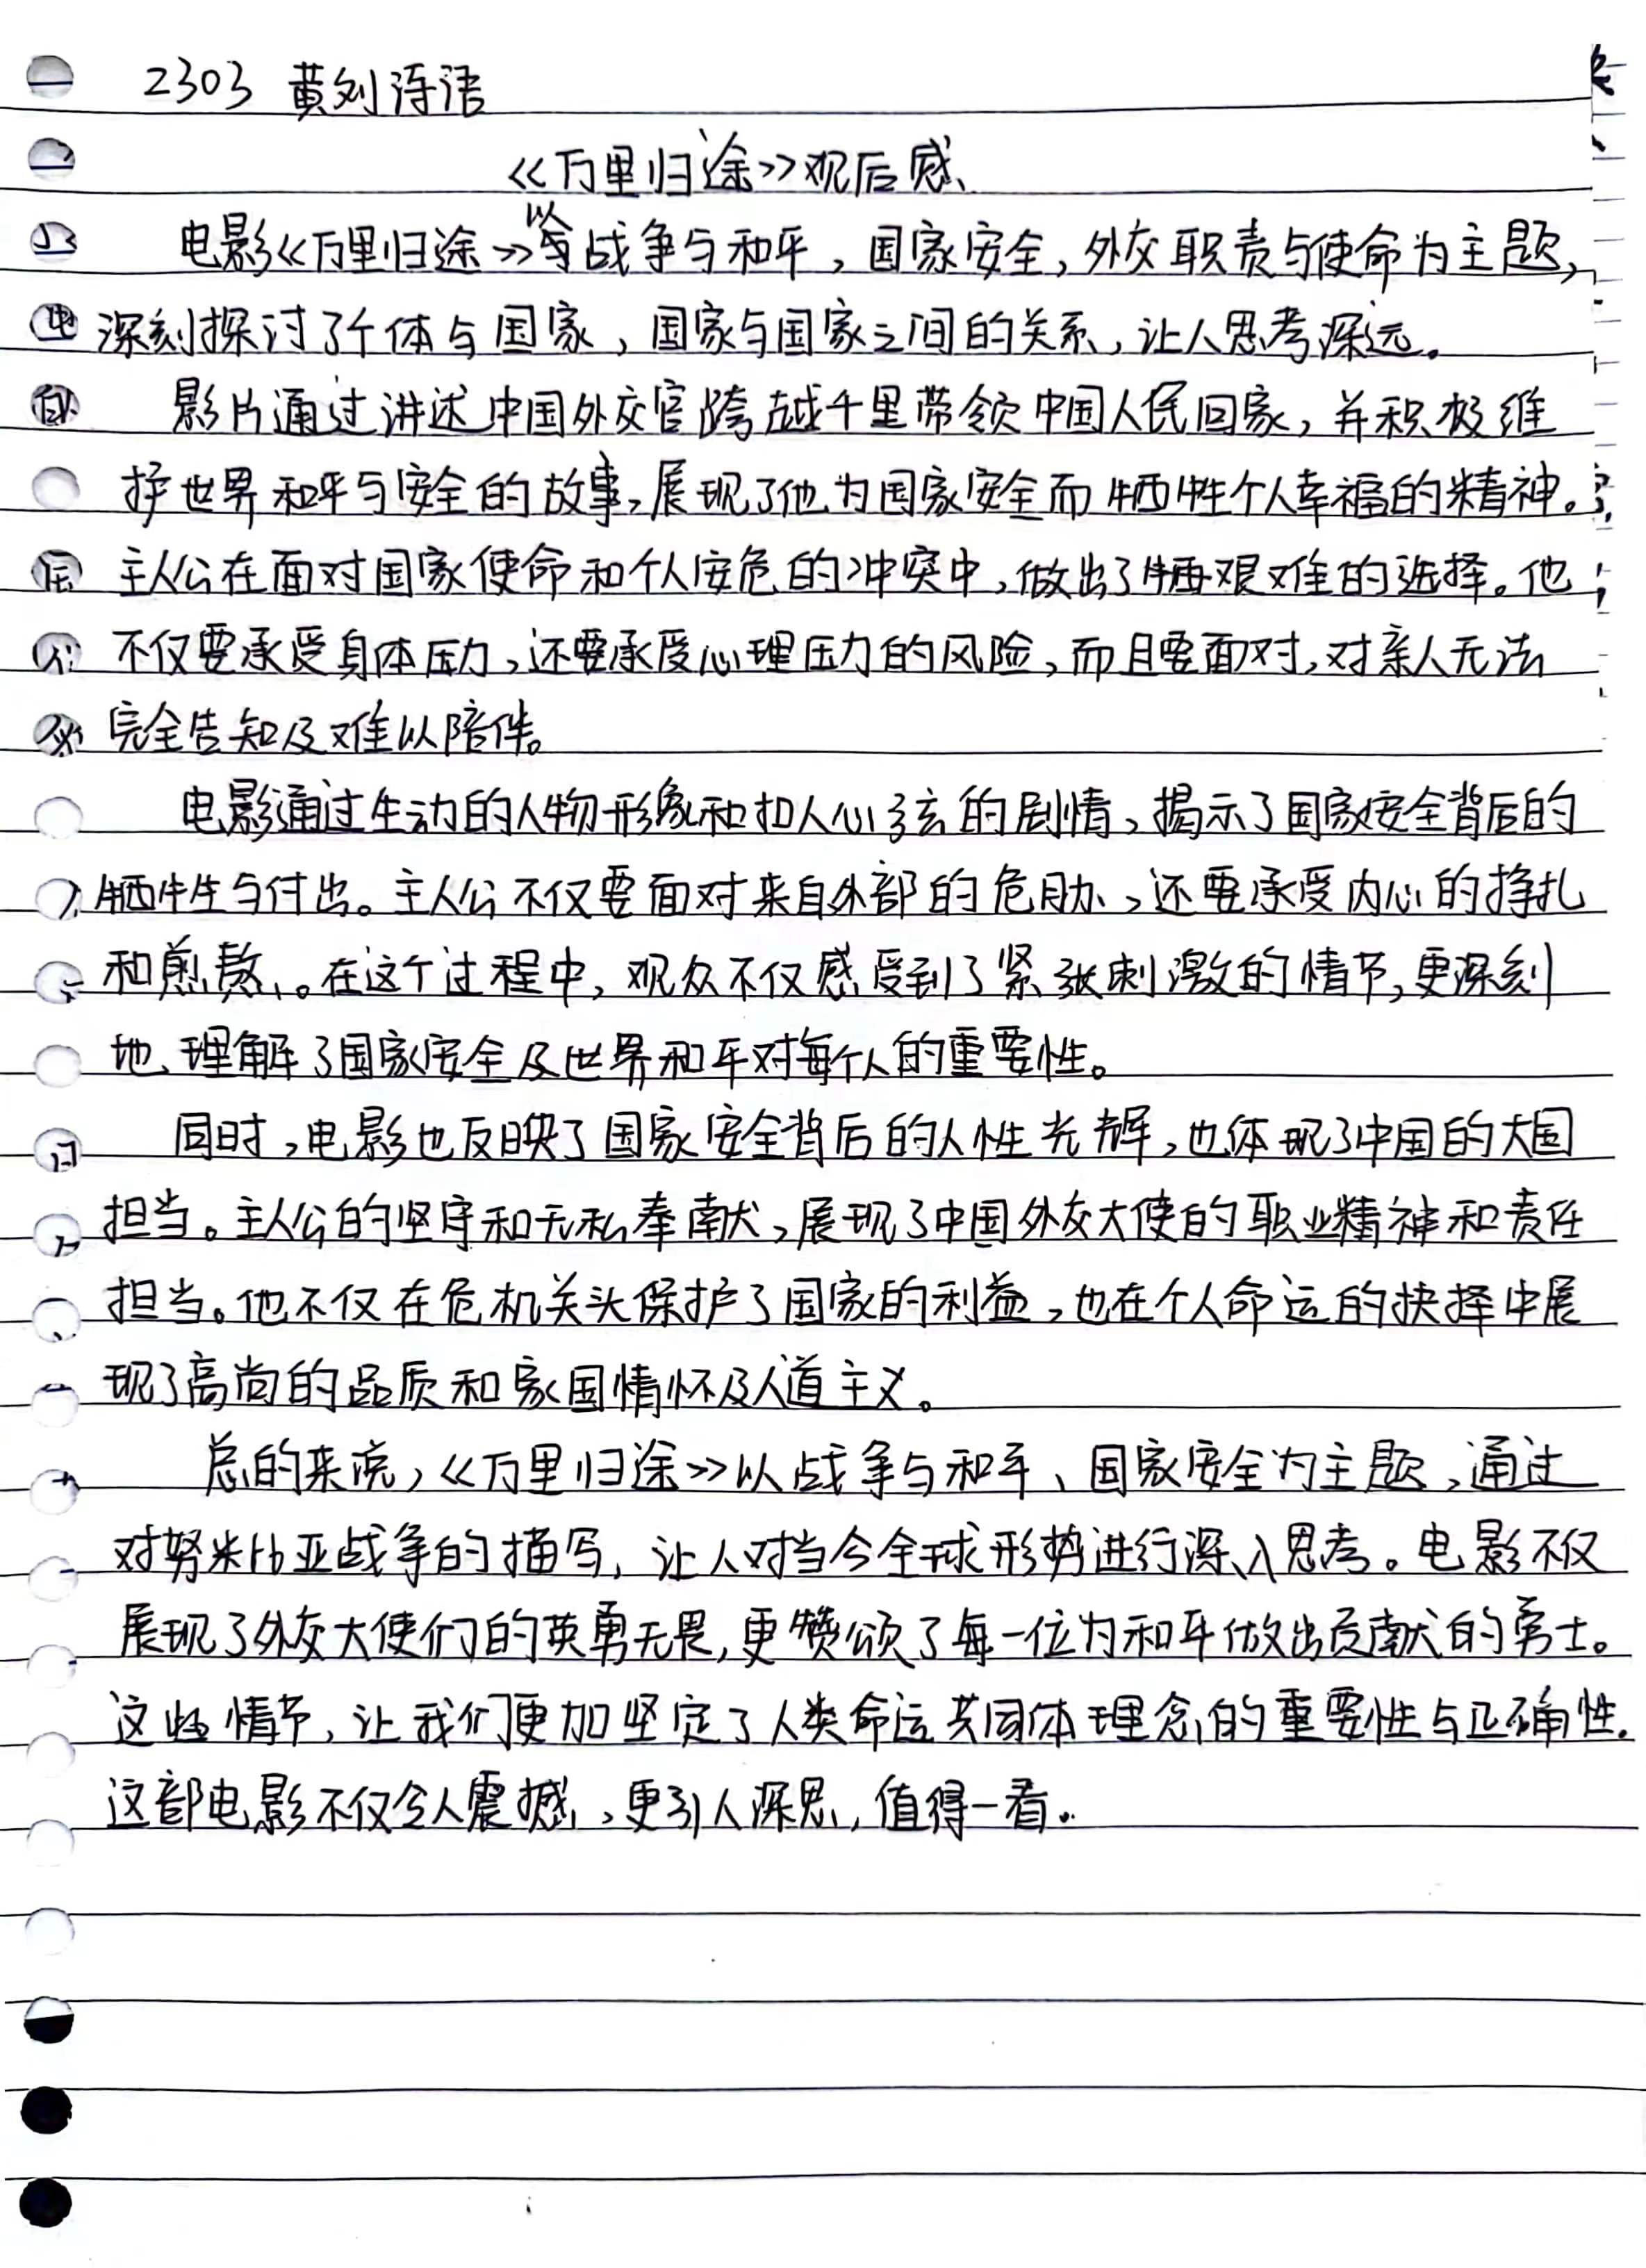 2303 黄刘诗语
《万里归途》观后感
电影《万里归途》以战争与和平，国家安全，外交职责与使命为主题，
深刻探讨了个体与国家，国家与国家之间的关系，让人思考深远。
影片通过讲述中国外交官跨越千里带领中国人民回家，并积极维
护世界和平与安全的故事，展现了他为国家安全而牺牲个人幸福的精神。
主人公在面对国家使命和个人安危的冲突中，做出了艰难的选择。他
不仅要承受身体压力，还要承受心理压力的风险，而且要面对，对亲人无法
完全告知及难以陪伴。
电影通过生动的人物形象和扣人心弦的剧情，揭示了国家安全背后的
牺牲与付出。主人公不仅要面对来自外部的危胁，还要承受内心的挣扎
和煎熬。在这个过程中，观众不仅感受到了紧张刺激的情节，更深刻
地理解了国家安全及世界和平对每个人的重要性。
同时，电影也反映了国家安全背后的人性光辉，也体现了中国的大国
担当。主人公的坚守和无私奉献，展现了中国外交大使的职业精神和责任
担当。他不仅在危机关头保护了国家的利益，也在个人命运的抉择中展
现了高尚的品质和家国情怀及人道主义。
总的来说，《万里归途》以战争与和平、国家安全为主题，通过
对努米比亚战争的描写，让人对当今全球形势进行深入思考。电影不仅
展现了外交大使们的英勇无畏，更赞颂了每一位为和平做出贡献的勇士。
这些情节，让我们更加坚定了人类命运共同体理念的重要性与正确性。
这部电影不仅令人震撼，更引人深思，值得一看。